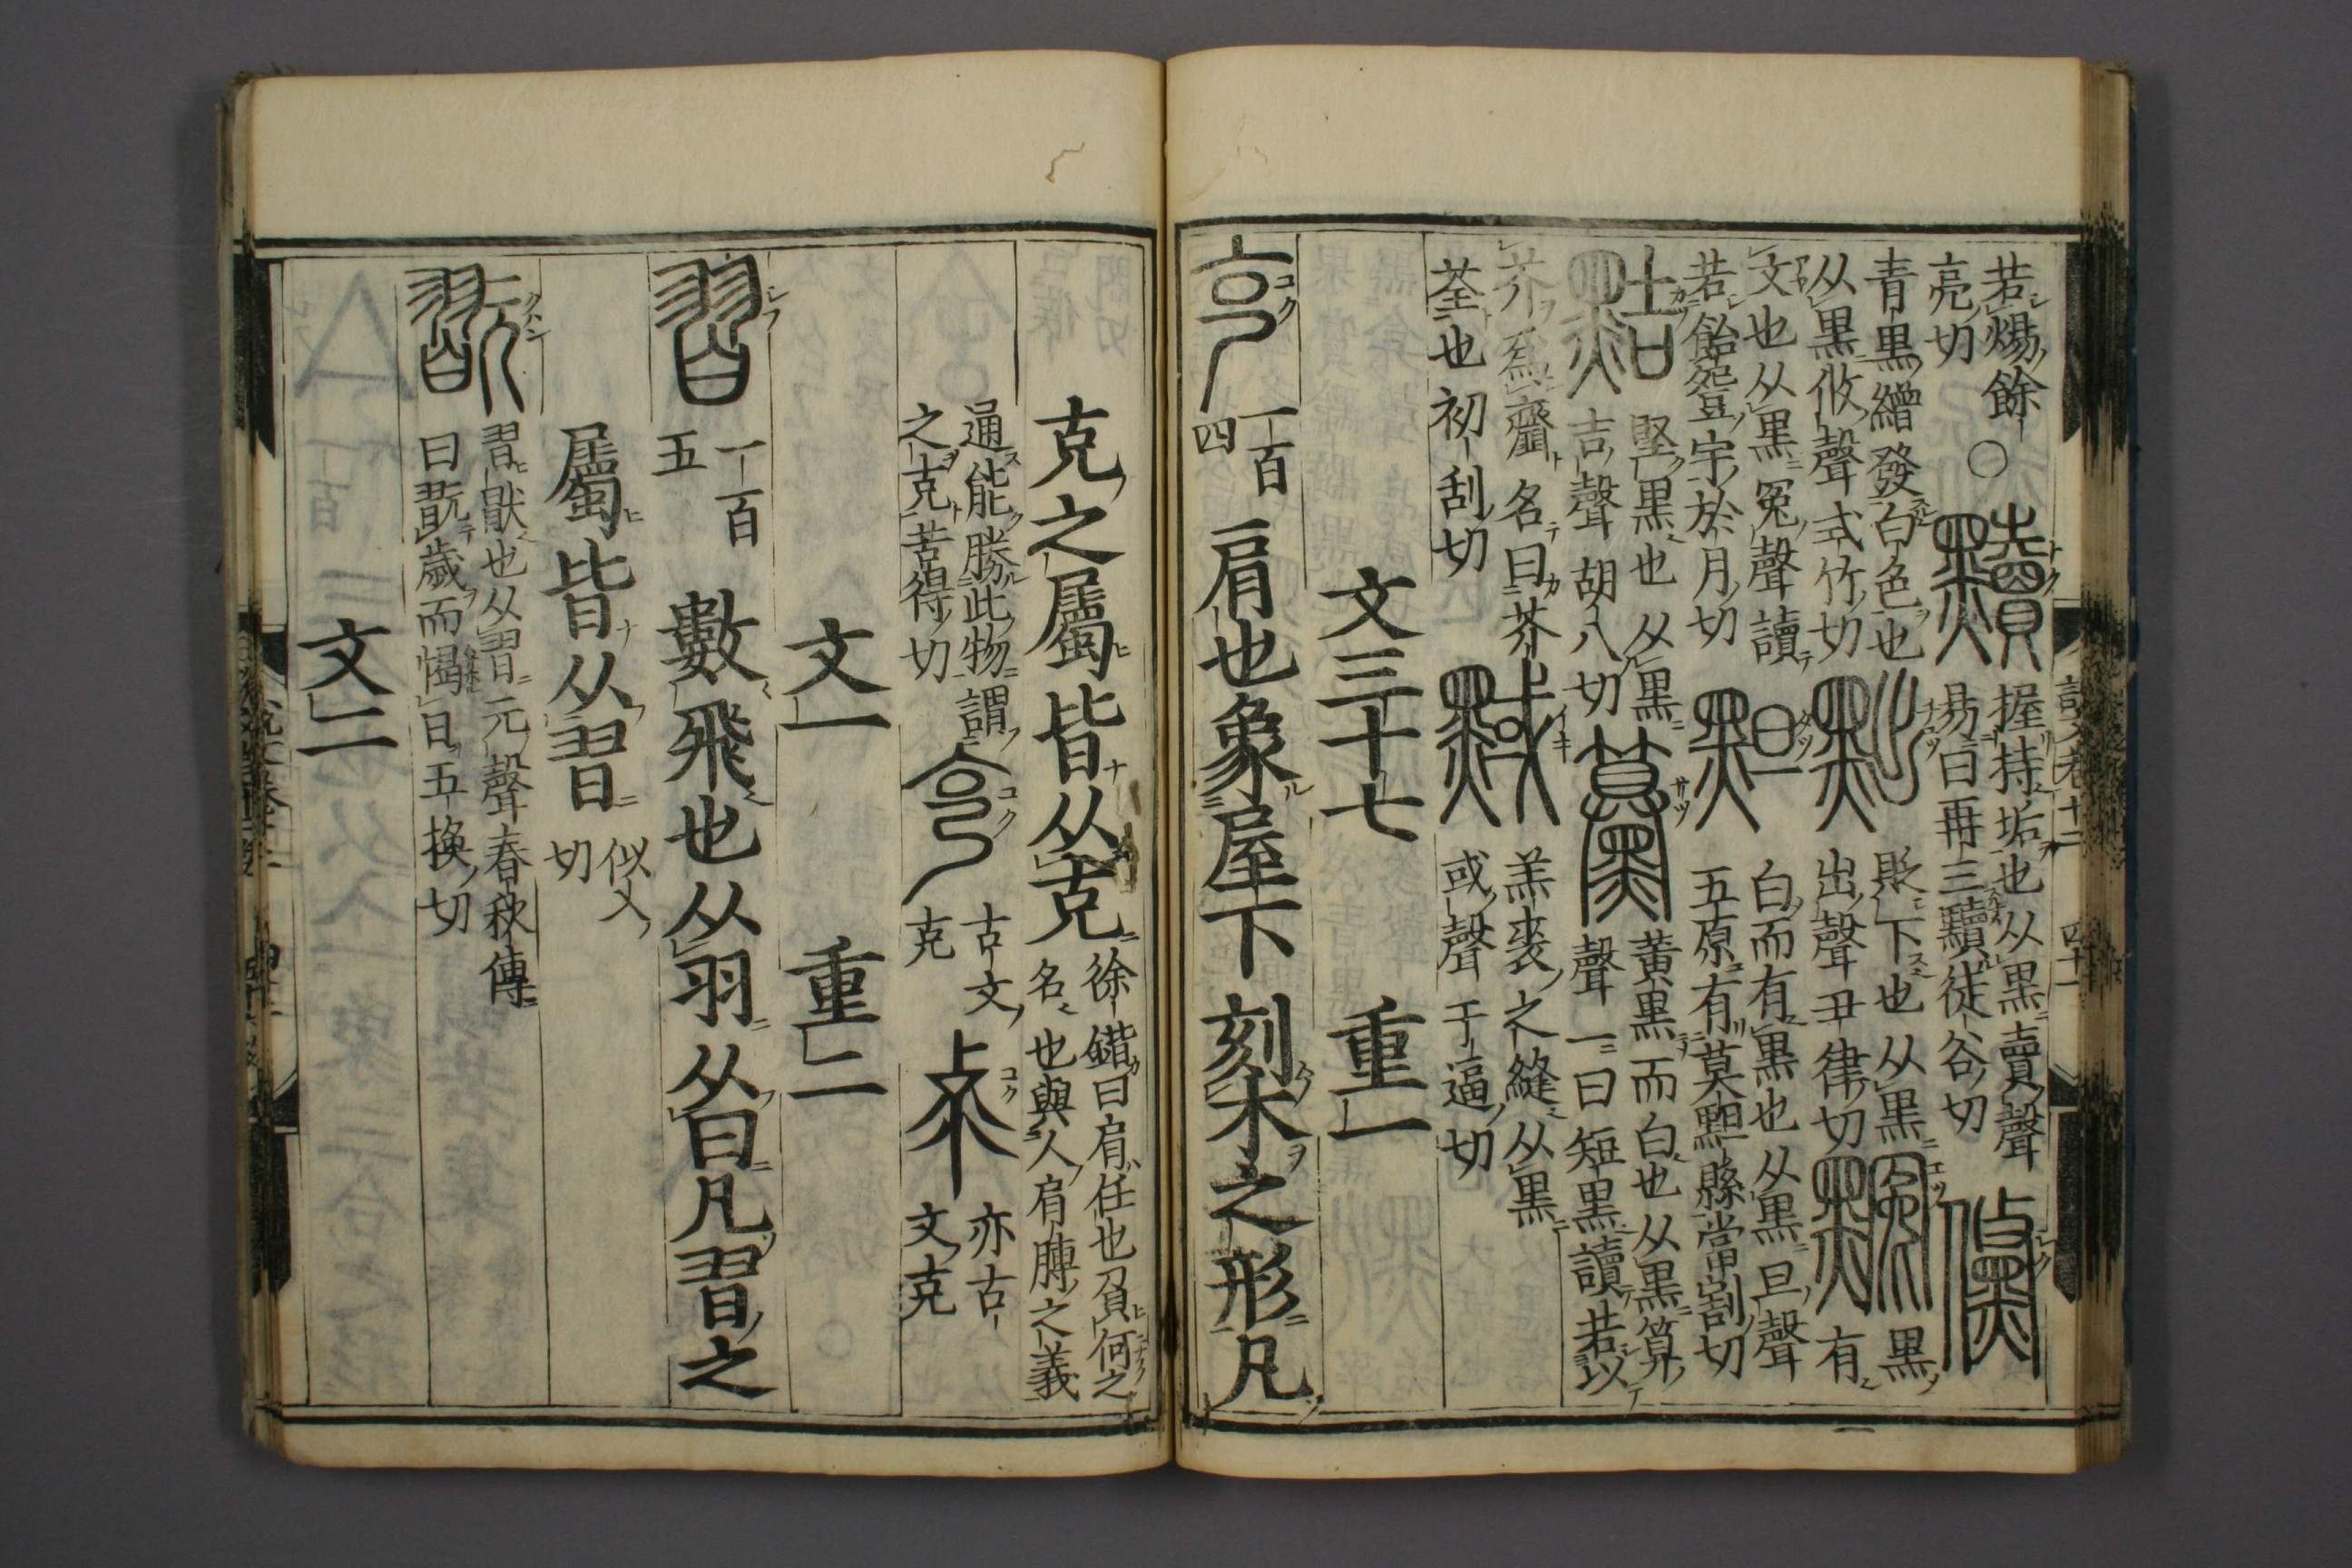 若煬餘
亮切
○
黷
握持垢也从黑賣聲
易曰再三黷徒谷切
儵
青黑繒發白色也
从黑攸聲式竹切
黜
貶下也从黑
出聲丑律切
黦
黑
有
文也从黑冤聲讀
若飴䇎字於月切
䵣
白而有黑也从黑旦聲
五原有莫䵣縣當割切
黠
堅黑也从黑
吉聲胡八切
䵵
黃黑而白也从黑算
聲一曰短黑讀若以
芥爲齏名曰芥
荃也初刮切
黬
羔裘之縫从黑
或聲于逼切
文三十七　重一
克
一百
四
肩也象屋下刻木之形凡
克之屬皆从克
徐鍇曰肩任也負何之
名也與人肩膊之義
通能勝此物謂
之克苦得切
克
古文
克
克
亦古
文克
文一　重二
習
一百
五
數飛也从羽从曰凡習之
屬皆从習
似入
切
翫
習猒也从習元聲春秋傳
曰翫歲而愒日五換切
文二
說文卷十二　四十一